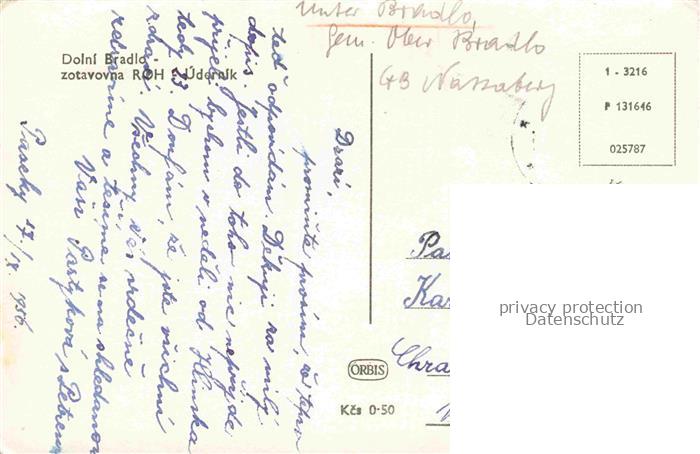 Unter Bradlo,
Gem. Ober Bradlo
GB Nassaberg
Dolní Bradlo -
zotavovna ROH - Úderník
1 - 3216
P 131646
025787
Drazí,
promiňte prosím, že teprv
teď odpovídám. Děkuji za milý
dopis. Jestli do toho nic nepřijde
přijeli bychom v neděli od Hlinska
tedy 23. Doufám, že jste všichni
zdraví. Všechny Vás srdečně
zdravíme a těšíme se na shledanou
Vaši Partyková s Petrem
Paseky 17./IX. 1956.
Pa
Kar
Chra
ORBIS
Kčs 0·50
privacy protection
Datenschutz